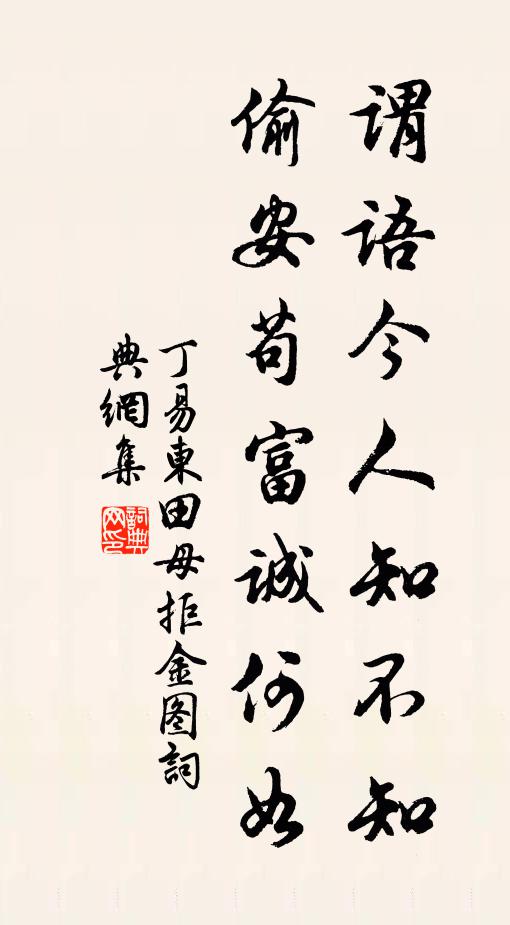 谓语今人知不知
偷安苟富诚何如
丁易東田母拒金图詞
典網集
詞典网印